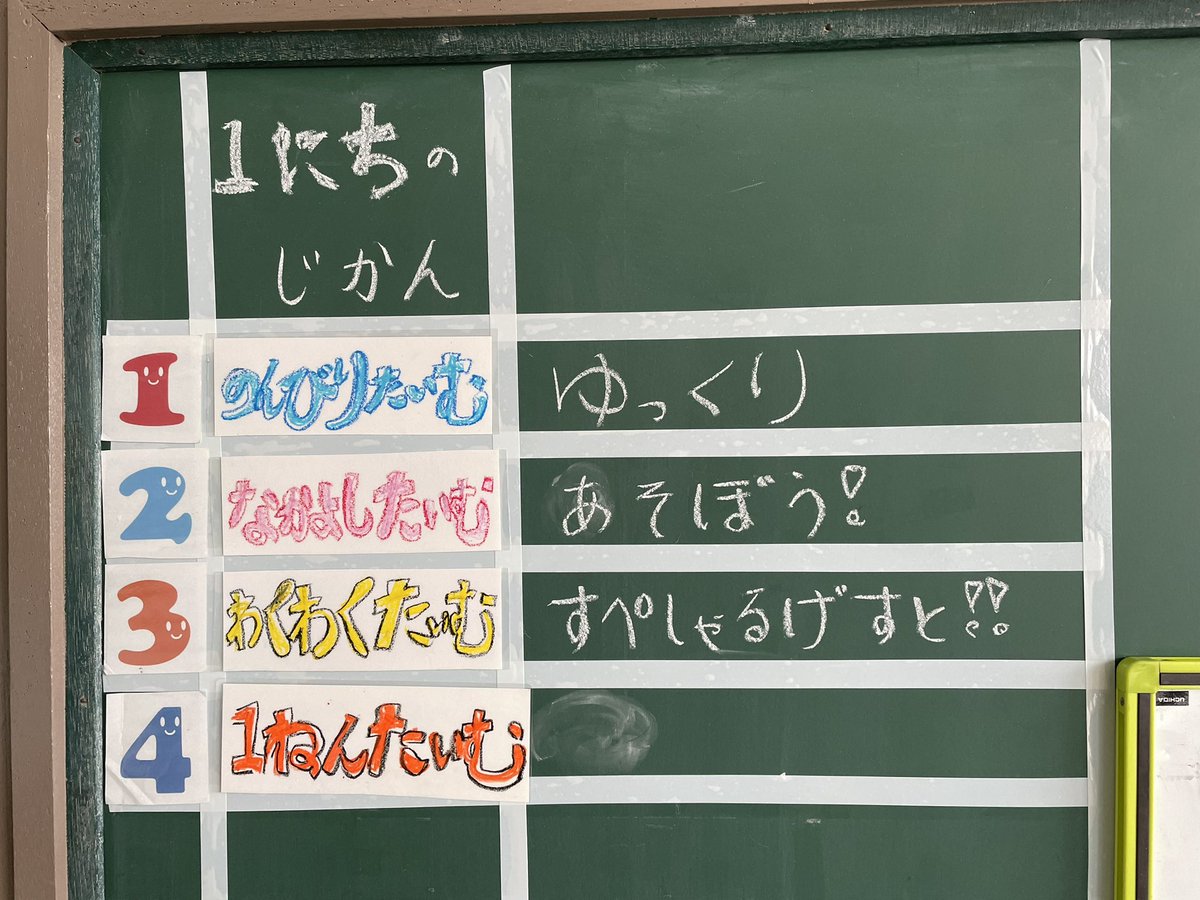 1にちの
じかん
1 のんびりたいむ ゆっくり
2 なかよしたいむ あそぼう!
3 わくわくたいむ すぺしゃるげすと!!
4 1ねんたいむ
UCHIDA